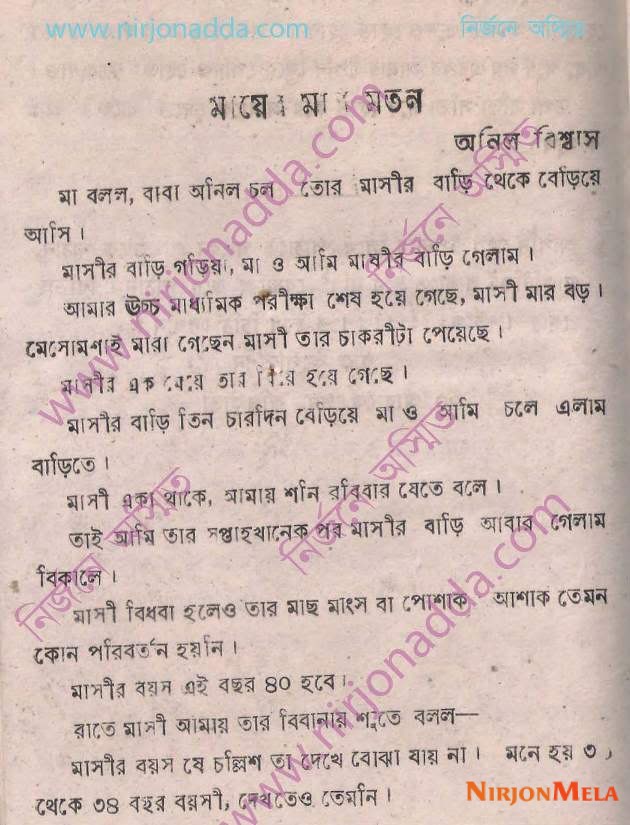 www.nirjonadda.com নির্জনে অস্মিত
মতন
অনিল বিশ্বাস
মা বলল, বাবা অনিল চল তোর মাসীর বাড়ি থেকে বেড়িয়ে
আসি।
মাসীর বাড়ি গড়িয়া, মা ও আমি মাসীর বাড়ি গেলাম।
আমার উচ্চ মাধ্যমিক পরীক্ষা শেষ হয়ে গেছে, মাসী মার বড়।
মেসোমশাই মারা গেছেন মাসী তার চাকরীটা পেয়েছে।
মাসীর এক মেয়ে তার বিয়ে হয়ে গেছে।
মাসীর বাড়ি তিন চারদিন বেড়িয়ে মা ও আমি চলে এলাম
বাড়িতে।
মাসী একা থাকে, আমায় শনি রবিবার যেতে বলে।
তাই আমি তার সপ্তাহখানেক পর মাসীর বাড়ি আবার গেলাম
বিকালে।
মাসী বিধবা হলেও তার মাছ মাংস বা পোশাক আশাক তেমন
কোন পরিবর্তন হয়নি।
মাসীর বয়স এই বছর ৪০ হবে।
রাতে মাসী আমায় তার বিবানায় শুতে বলল—
মাসীর বয়স যে চল্লিশ তা দেখে বোঝা যায় না। মনে হয়
থেকে ৩৪ বছর বয়সী, দেখতেও তেমনি।
NIRJONMELA
www.nirjonadda.com
নির্জনে অস্মিত
নির্জনে অস্মিত
নির্জনে অস্মিত
www.nirjonadda.com